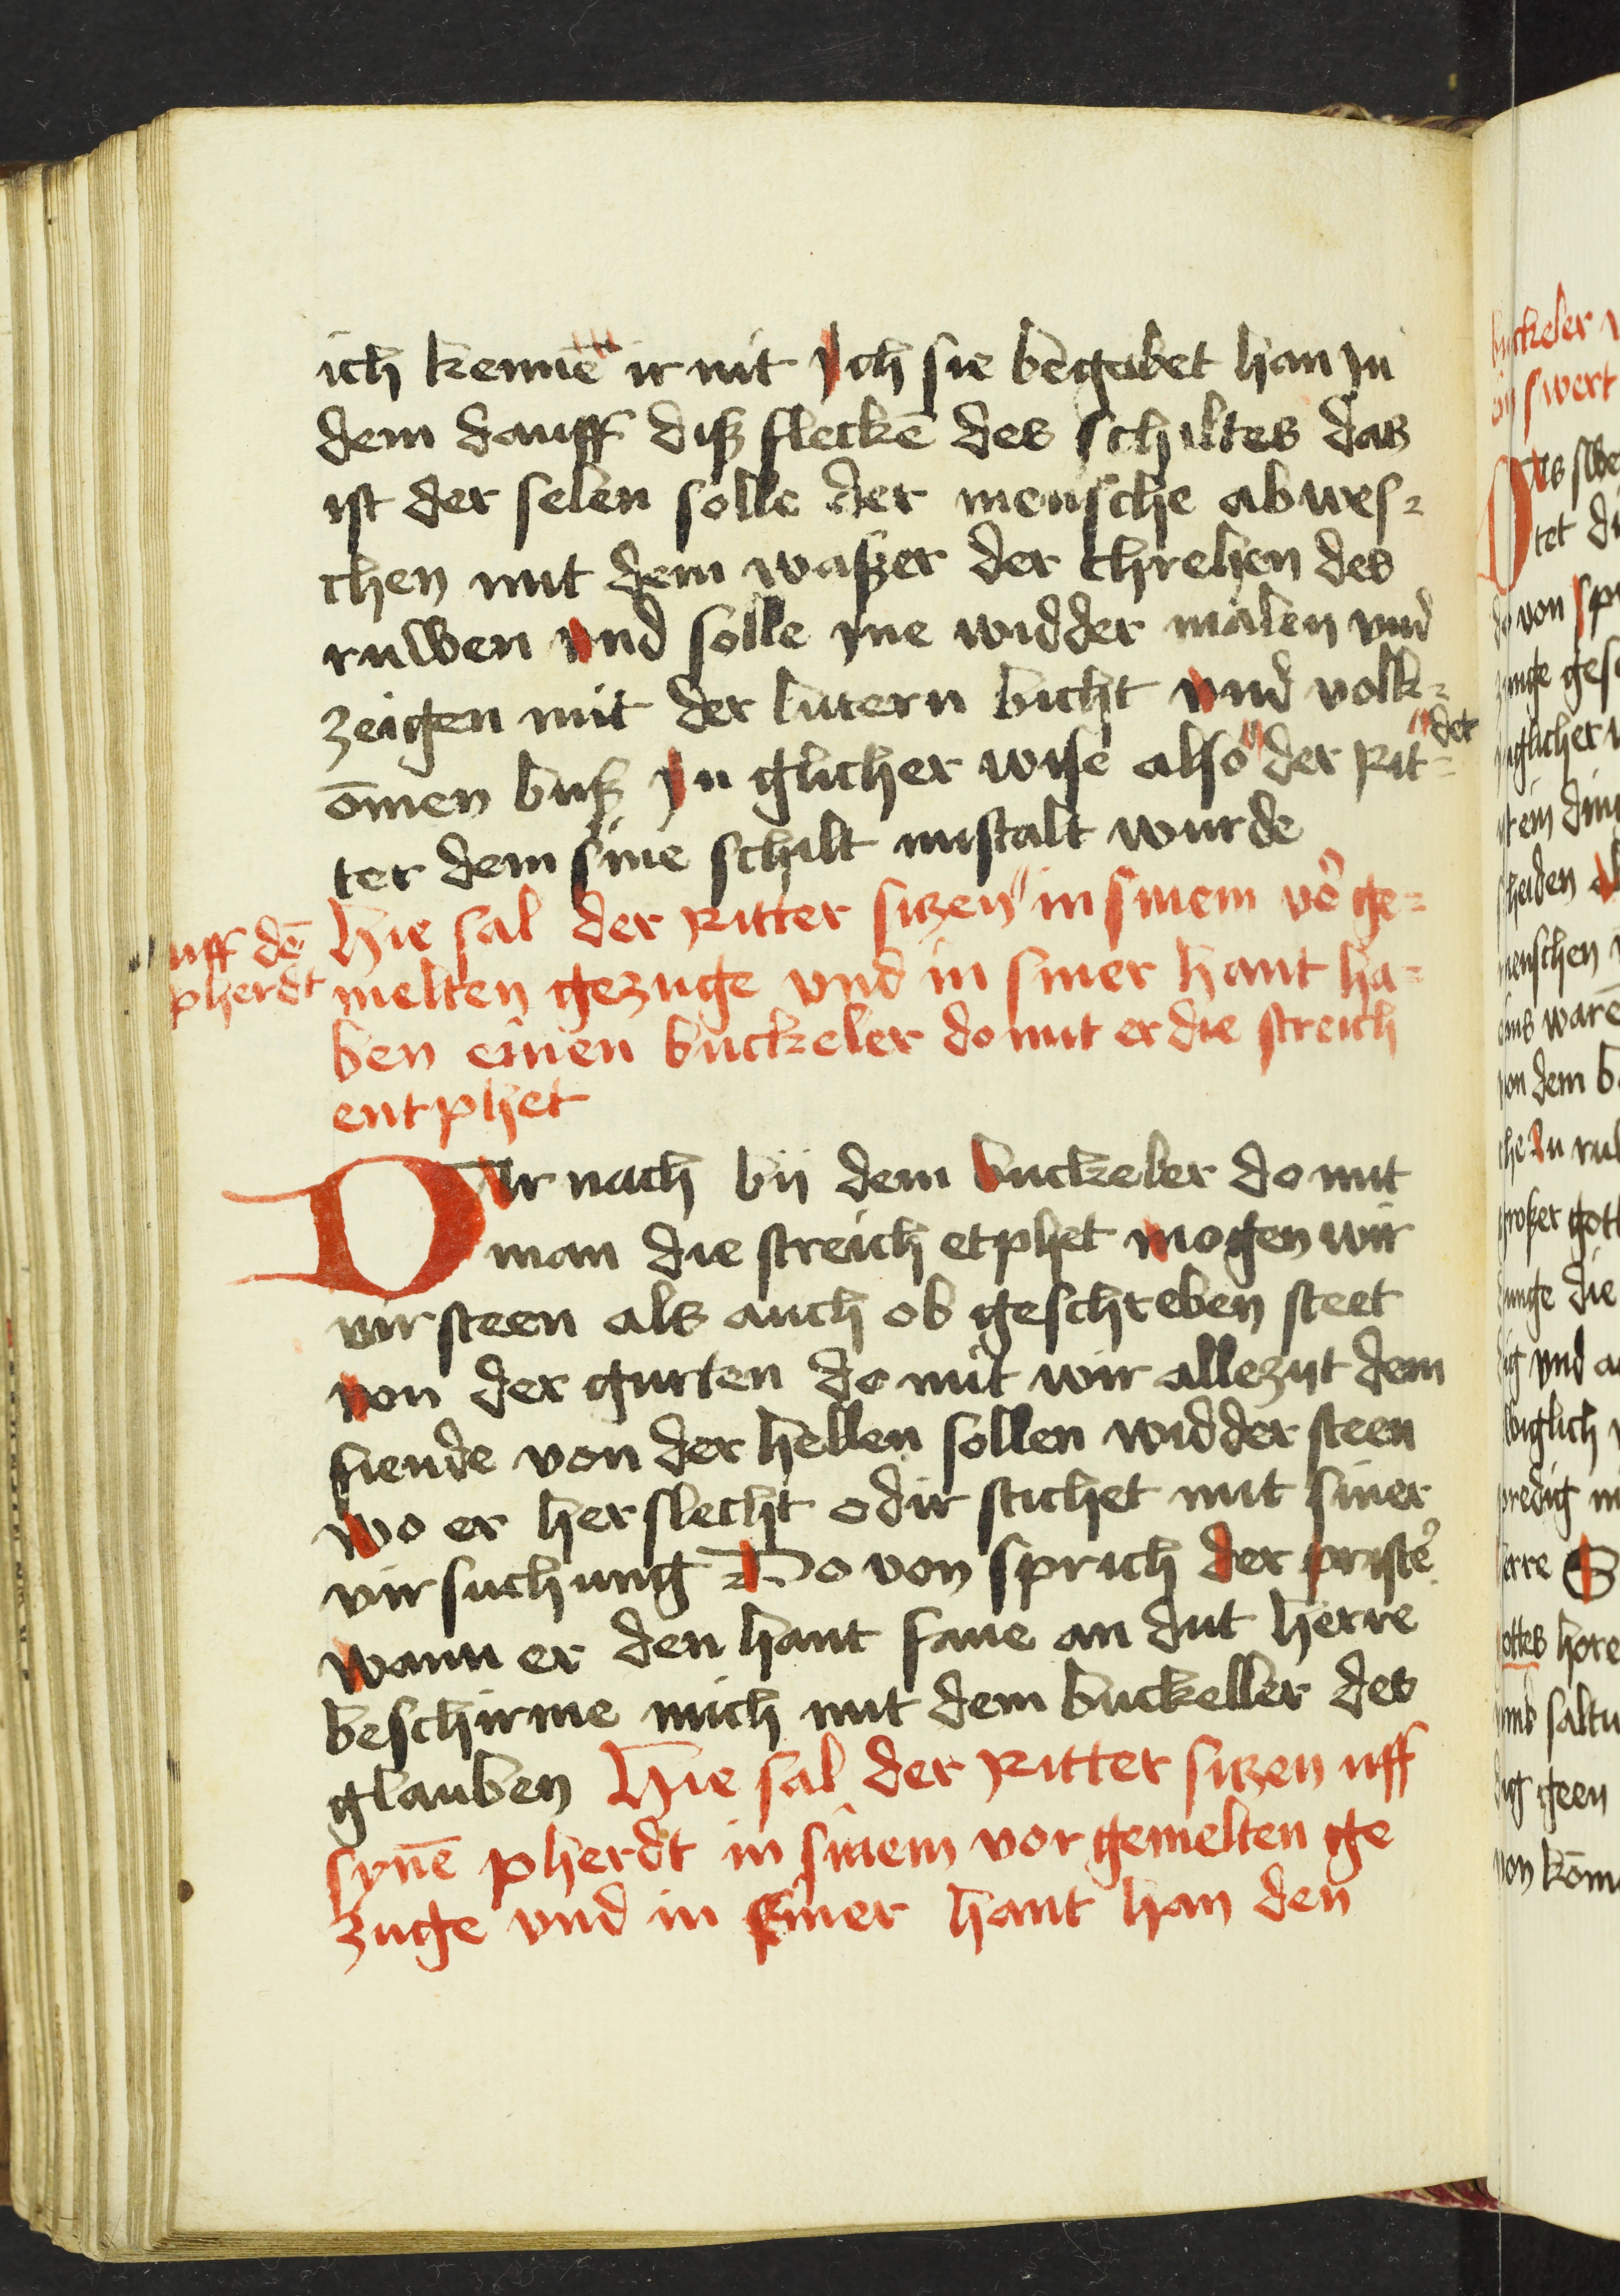 ich kennē ir nit Ich sie begabet han In
dem dauff diß flecke des schiltes das
ist der selen solle der mensche abwes-
chen mit dem waßer der threhen des
ruwen vnd solle yne widder malen vnd
zeigen mit der lutern bicht vnd volk-
ōmen buß In glicher wise also der Rit-
det
ter dem sine schilt mistalt wurde
Hie sal der Ritter sitzen in sinem vor ge-
uff dē
pherdt
melten gezuge vnd in siner hant ha-
ben einen buckeler do mit er die streich
entphet
DAr nach bij dem buckeler do mit
man die streich etphet mogen wir
virsteen als auch ob geschreben steet
von der gurten do mit wir allezijt dem
fiende von der hellen sollen widdersteen
wo er her slecht odir stichet mit siner
virsuchung Do von sprich der priste
wann er den hant fane an dut herre
beschirme mich mit dem buckeller des
glauben Hie sal der Ritter sitzen uff
synē pherdt in sinem vor gemelten ge
zuge vnd in siner hant han den
buckeler
swert
tet
do von
zunge
iglicher
menschen
von dem
großer
vnge die
vnd
predig
herre
gottes
geen